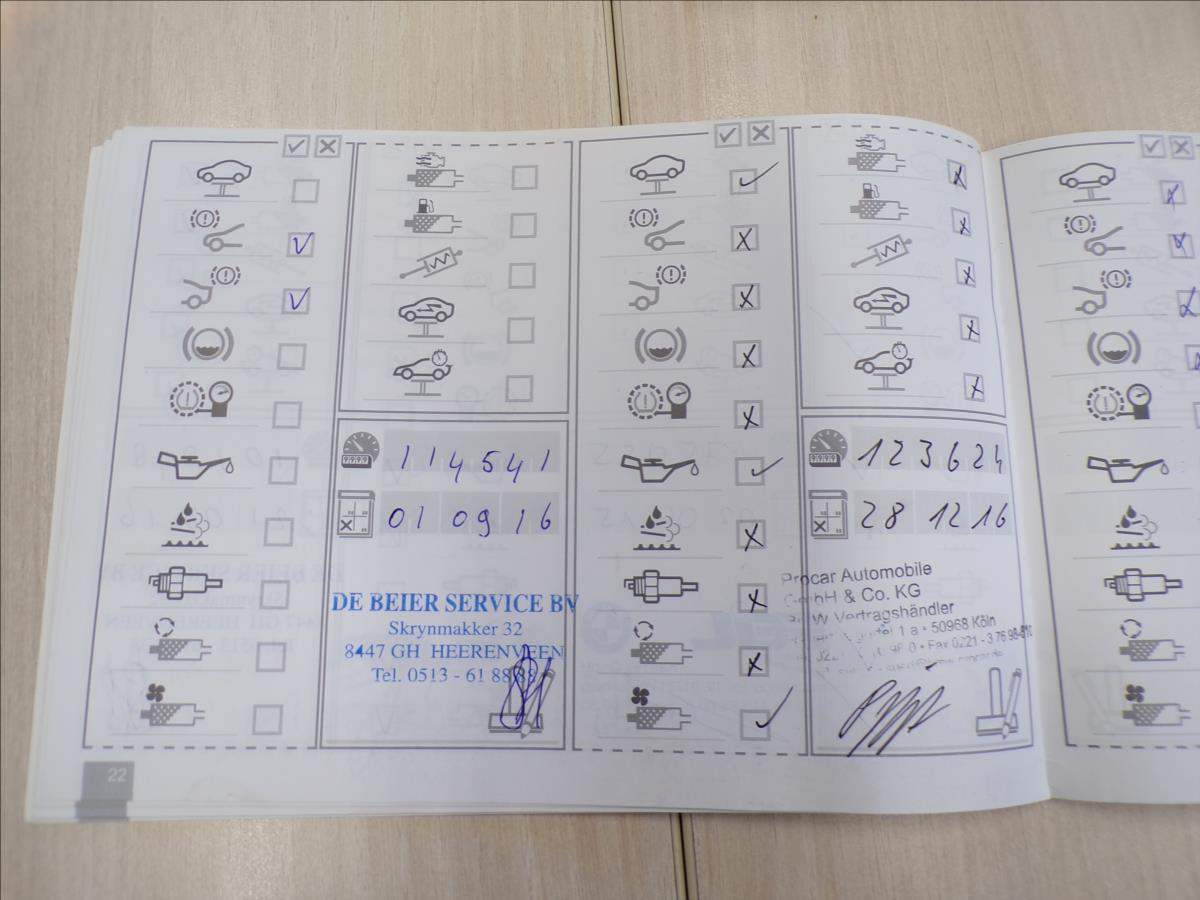 114541
01 09 16
DE BEIER SERVICE BV
Skrynmakker 32
8447 GH HEERENVEEN
Tel. 0513 - 61 88
22
123624
28 12 16
Procar Automobile
GmbH & Co. KG
Vertragshändler
1 a • 50968 Köln
Fax 0221 - 3 76 98-